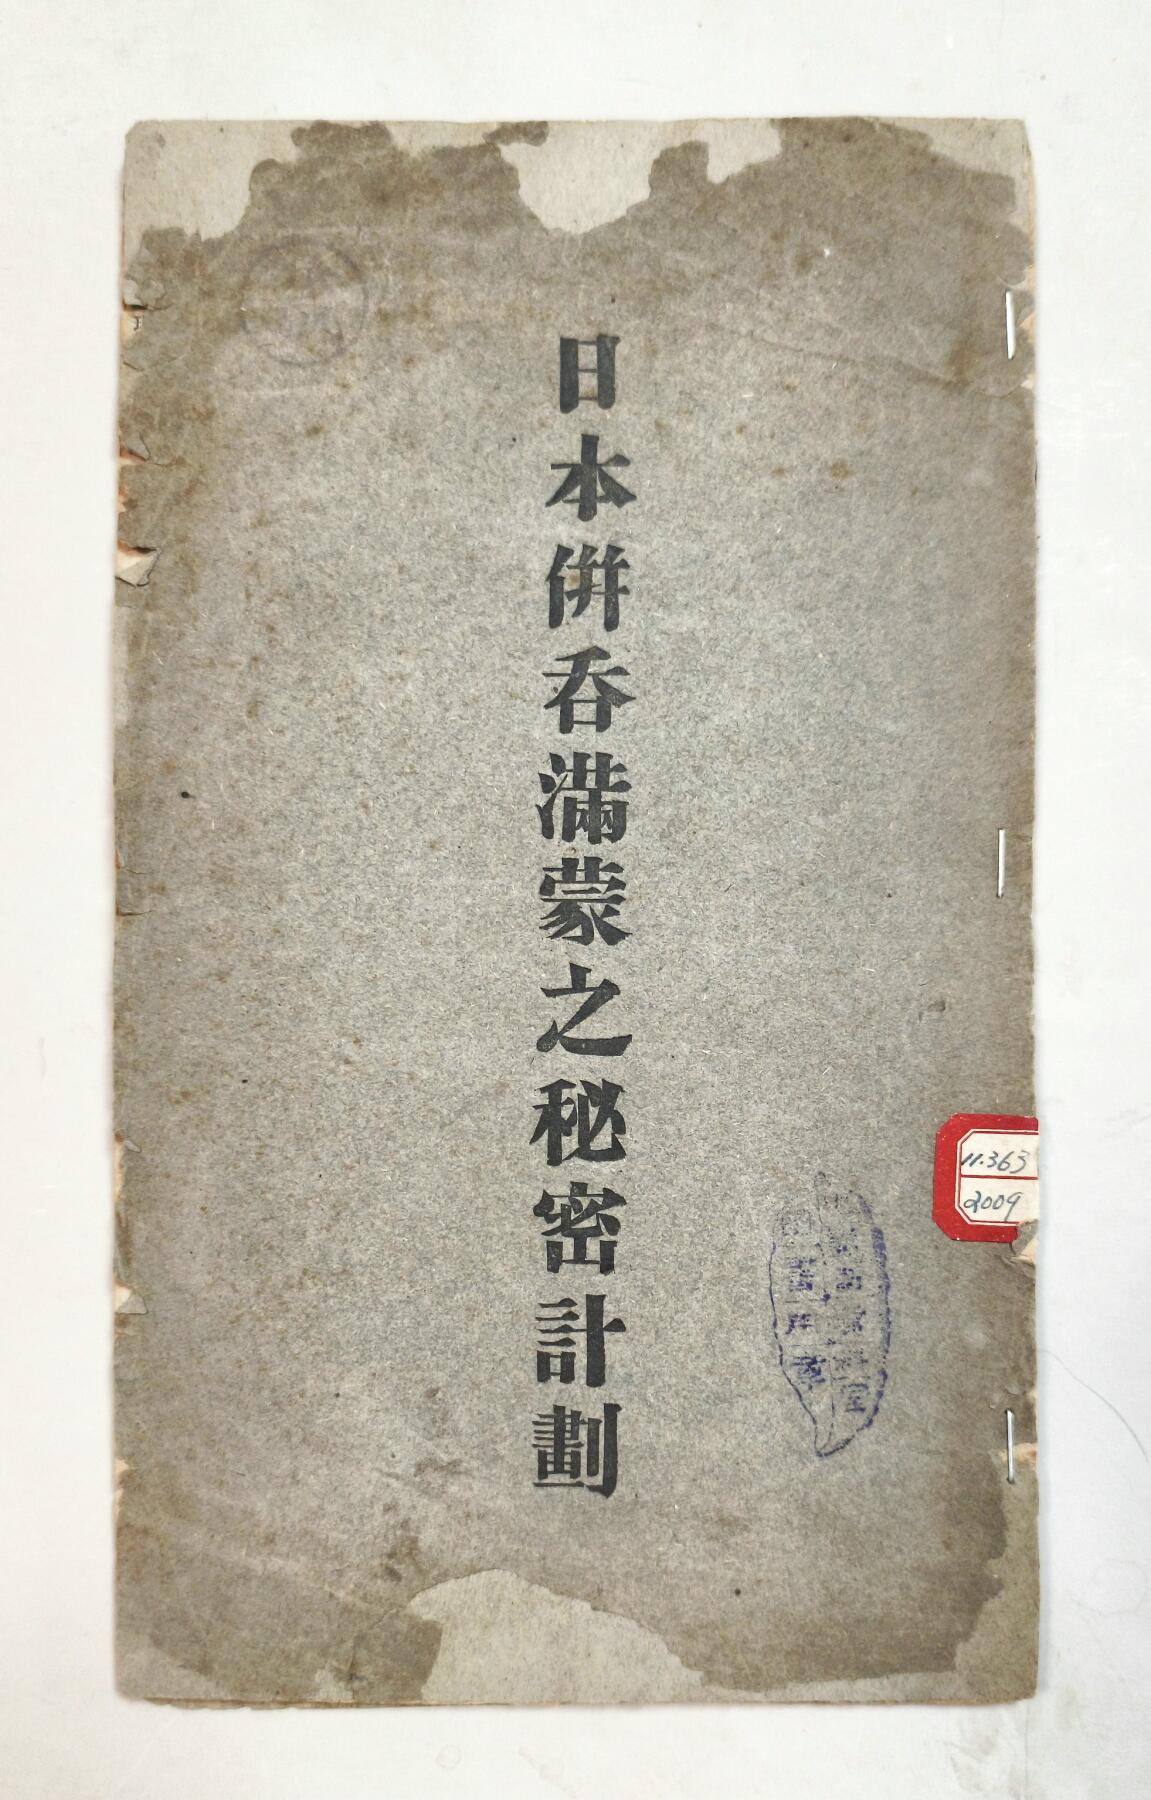 日本併吞滿蒙之秘密計劃
11.363
2009